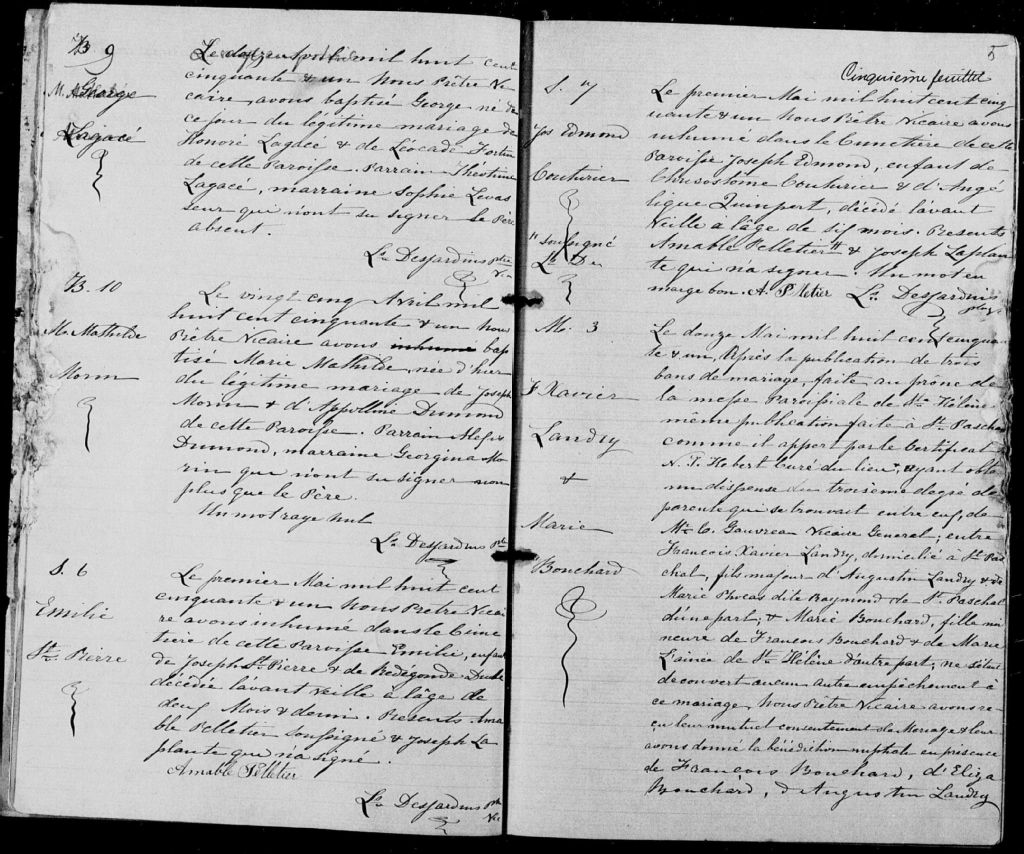 B 9
George
Lagacé
Le douze avril mil huit cent
cinquante & un Nous Prêtre Vi
caire, avons baptisé George né de
ce jour du légitime mariage de
Honoré Lagacé & de Léocade Fortin
de cette Paroisse. Parrain Théotime
Lagacé, marraine Sophie Levas
seur qui n'ont su signer le Père
absent.
Ls. Desjardins Ptre
Vic
B. 10
Me. Mathilde
Morin
Le vingt cinq Avril mil
huit cent cinquante & un Nous
Prêtre Vicaire avons inhumé bap
tisé Marie Mathilde, née d'hier
du légitime mariage de Joseph
Morin & d'Appolline Dumond
de cette Paroisse. Parrain Alexis
Dumond, marraine Georgina Mo
rin que n'ont su signer non
plus que le Père.
Un mot rayé nul
Ls. Desjardins Ptr
S. 6
Emilie
St. Pierre
Le premier Mai mil huit cent
cinquante & un Nous Prêtre Vicai
re avons inhumé dans le Cime
tière de cette Paroisse Emilie, enfant
de Joseph St. Pierre & de Radégonde Dubé
décédée l'avant veille à l'âge de
deux Mois & demi. Présents Ama
ble Pelletier soussigné & Joseph La
plante qui n'a signé.
Amable Pelletier
Ls. Desjardins Ptr
Vic
5
Cinquième feuillet
S. 7
Jos Edmond
Couturier
" soussigné
Ls. De
Le premier Mai mil huit cent cinq
uante & un Nous Prêtre Vicaire avons
inhumé dans le Cimetière de cette
Paroisse Joseph Edmond, enfant de
Chrisostome Couturier & d'Angé
lique Quimpert, décédé l'avant
Veille à l'âge de six mois. Présents
Amable Pelletier " & Joseph Laplan
te qui n'a signer. Un mot en
marge bon. A. P. letier Ls. Desjardins
Ptr V.
M. 3
F Xavier
Landry
&
Marie
Bouchard
Le douze Mai mil huit cent cinquan
te & un, Après la publication de trois
bans de mariage, faite au prône de
la messe Paroissiale de Ste Hélène
même publication faite à St. Paschal
comme il appert par le Certificat
N. T. Hebert Curé du lieu, ayant obte
nu dispense du troisième degré de
parenté qui se trouvait entre eux, de
Mr. C. Gauvreau Vicaire General, entre
François Xavier Landry, domicilié à St. Pas
chal, fils majeur d'Augustin Landry & de
Marie Phocas dite Raymond de St. Paschal
d'une part, & Marie Bouchard, fille mi
neure de Francois Bouchard & de Marie
Lainée de Ste Hélène d'autre part, ne s'étant
découvert aucun autre empêchement à
ce mariage, Nous Prêtre Vicaire avons re
çu leur mutuel consentement de Mariage & leur
avons donné la bénédiction nuptiale en présence
de François Bouchard, d'Eliza
Bouchard, d'Augustin Landry